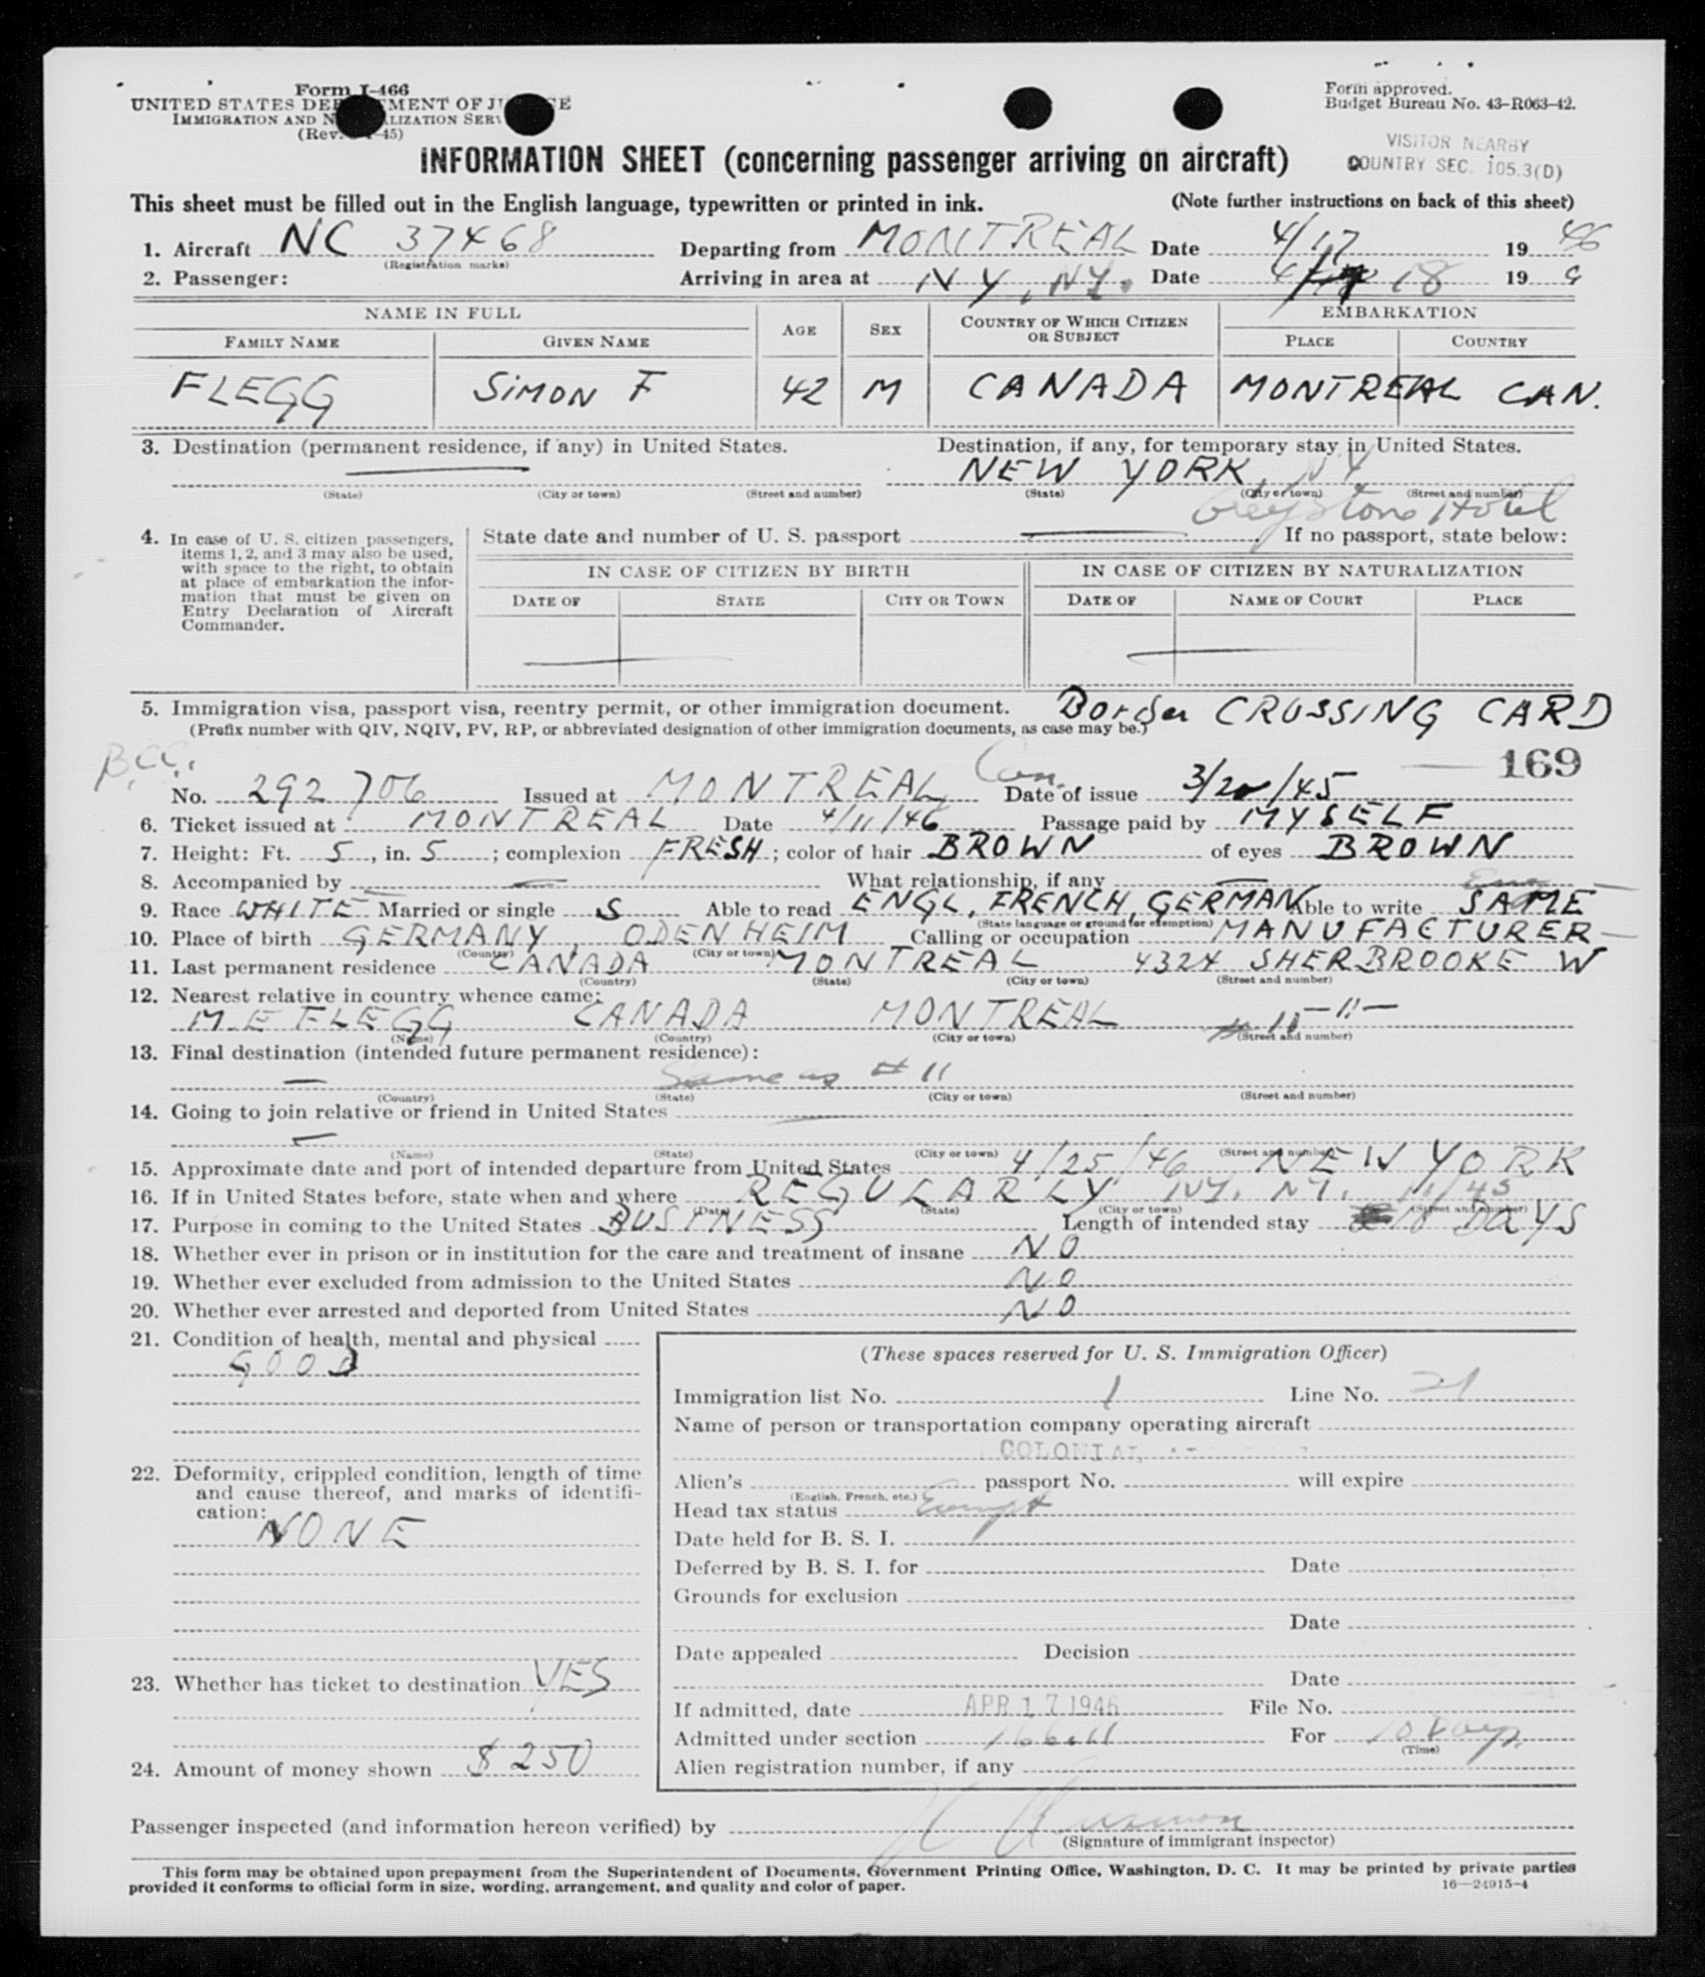 Form I-466
UNITED STATES DEPARTMENT OF JUSTICE
IMMIGRATION AND NATURALIZATION SERVICE
(Rev. -45)
Form approved.
Budget Bureau No. 43-R063-42.
VISITOR NEARBY
COUNTRY SEC. 105.3(D)
INFORMATION SHEET (concerning passenger arriving on aircraft)
This sheet must be filled out in the English language, typewritten or printed in ink. (Note further instructions on back of this sheet)
1. Aircraft NC 37468 Departing from MONTREAL Date 4/17 1946
(Registration marks)
2. Passenger: Arriving in area at NY, NY. Date 4/ 18 19
NAME IN FULL AGE SEX COUNTRY OF WHICH CITIZEN OR SUBJECT EMBARKATION
FAMILY NAME GIVEN NAME PLACE COUNTRY
FLEGG SIMON F 42 M CANADA MONTREAL CAN.
3. Destination (permanent residence, if any) in United States. Destination, if any, for temporary stay in United States.
— NEW YORK NY
(State) (City or town) (Street and number) (State) (City or town) (Street and number)
Greystone Hotel
4. In case of U. S. citizen passengers, items 1, 2, and 3 may also be used, with space to the right, to obtain at place of embarkation the information that must be given on Entry Declaration of Aircraft Commander.
State date and number of U. S. passport — If no passport, state below:
IN CASE OF CITIZEN BY BIRTH IN CASE OF CITIZEN BY NATURALIZATION
DATE OF STATE CITY OR TOWN DATE OF NAME OF COURT PLACE
— —
5. Immigration visa, passport visa, reentry permit, or other immigration document. Border CROSSING CARD
(Prefix number with QIV, NQIV, PV, RP, or abbreviated designation of other immigration documents, as case may be.)
169
B.C.C.
No. 292706 Issued at MONTREAL Can. Date of issue 3/20/45
6. Ticket issued at MONTREAL Date 4/11/46 Passage paid by MYSELF
7. Height: Ft. 5, in. 5; complexion FRESH; color of hair BROWN of eyes BROWN
8. Accompanied by — What relationship, if any —
9. Race WHITE Married or single S Able to read ENGL, FRENCH, GERMAN Able to write SAME
(State language or ground for exemption)
10. Place of birth GERMANY, ODENHEIM Calling or occupation MANUFACTURER
(Country) (City or town)
11. Last permanent residence CANADA MONTREAL 4324 SHERBROOKE W
(Country) (State) (City or town) (Street and number)
12. Nearest relative in country whence came:
M E FLEGG CANADA MONTREAL # 11 —"—
(Name) (Country) (City or town) (Street and number)
13. Final destination (intended future permanent residence):
— Same as # 11
(Country) (State) (City or town) (Street and number)
14. Going to join relative or friend in United States —
—
(Name) (State) (City or town) (Street and number)
15. Approximate date and port of intended departure from United States 4/25/46 NEW YORK
16. If in United States before, state when and where REGULARLY NY. NY. 11/45
(Date) (State) (City or town) (Street and number)
17. Purpose in coming to the United States BUSINESS Length of intended stay 10 DAYS
18. Whether ever in prison or in institution for the care and treatment of insane NO
19. Whether ever excluded from admission to the United States NO
20. Whether ever arrested and deported from United States NO
21. Condition of health, mental and physical
GOOD
22. Deformity, crippled condition, length of time and cause thereof, and marks of identification:
NONE
23. Whether has ticket to destination YES
24. Amount of money shown $250
(These spaces reserved for U. S. Immigration Officer)
Immigration list No. 1 Line No. 21
Name of person or transportation company operating aircraft
COLONIAL
Alien's passport No. will expire
(English, French, etc.)
Head tax status Exempt
Date held for B. S. I.
Deferred by B. S. I. for Date
Grounds for exclusion
Date
Date appealed Decision
Date
If admitted, date APR 17 1946 File No.
Admitted under section For 10 Days
(Time)
Alien registration number, if any
Passenger inspected (and information hereon verified) by
(Signature of immigrant inspector)
This form may be obtained upon prepayment from the Superintendent of Documents, Government Printing Office, Washington, D. C. It may be printed by private parties
provided it conforms to official form in size, wording, arrangement, and quality and color of paper.
16—24915-4